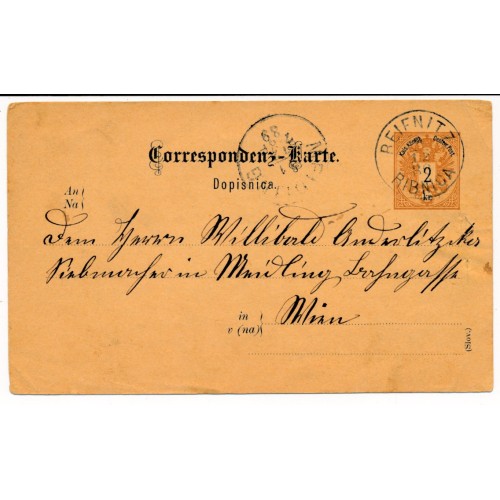 Correspondenz-Karte.
Dopisnica.
REIFNITZ
RIBNICA
2
kr
An
Na
Dem Herrn Willibald
Siebmacher in Meidling Bahngasse
in
v (na)
Wien
(Slov.)